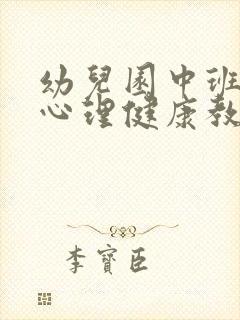 幼兒園中班
心理健康教
李寶臣